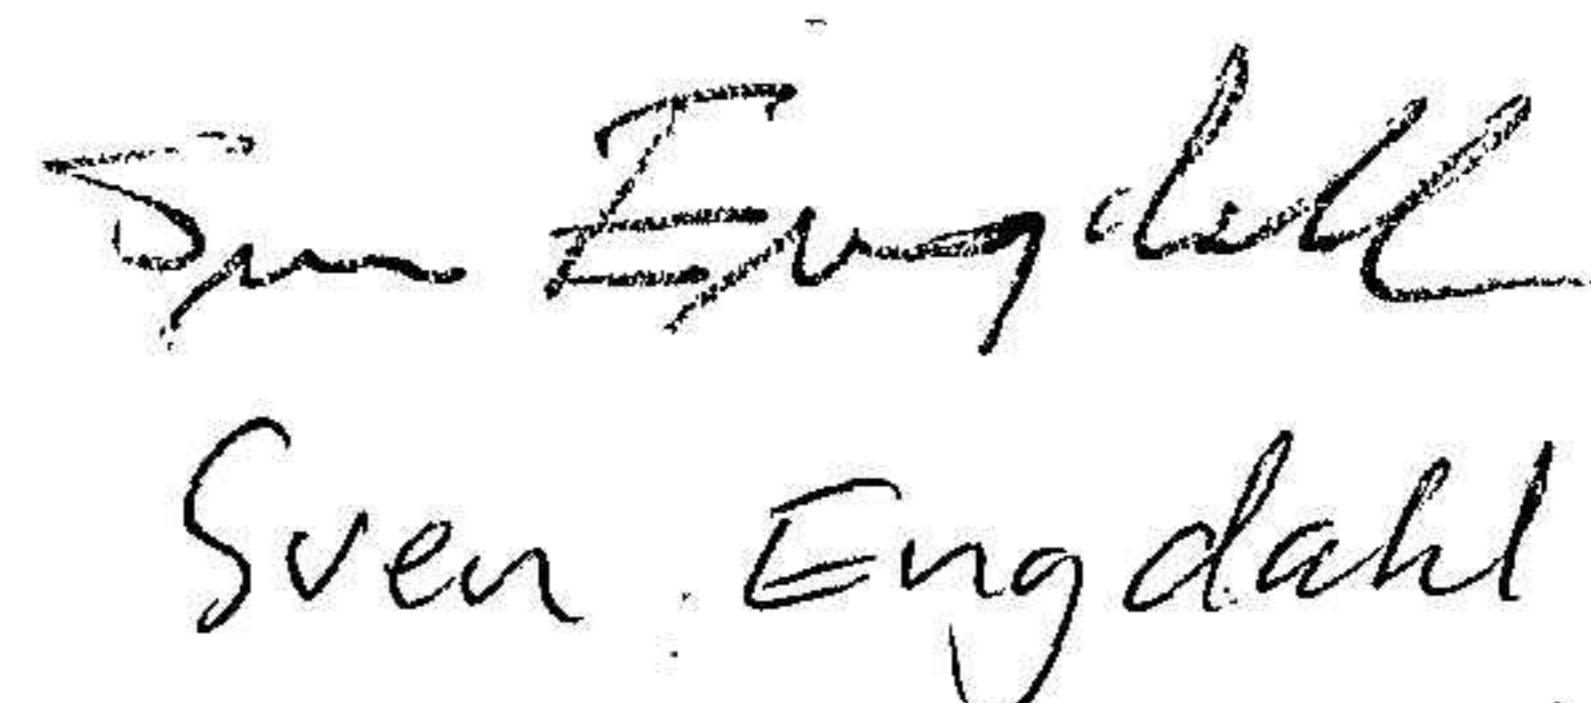 Sven Engdahl
Sven Engdahl